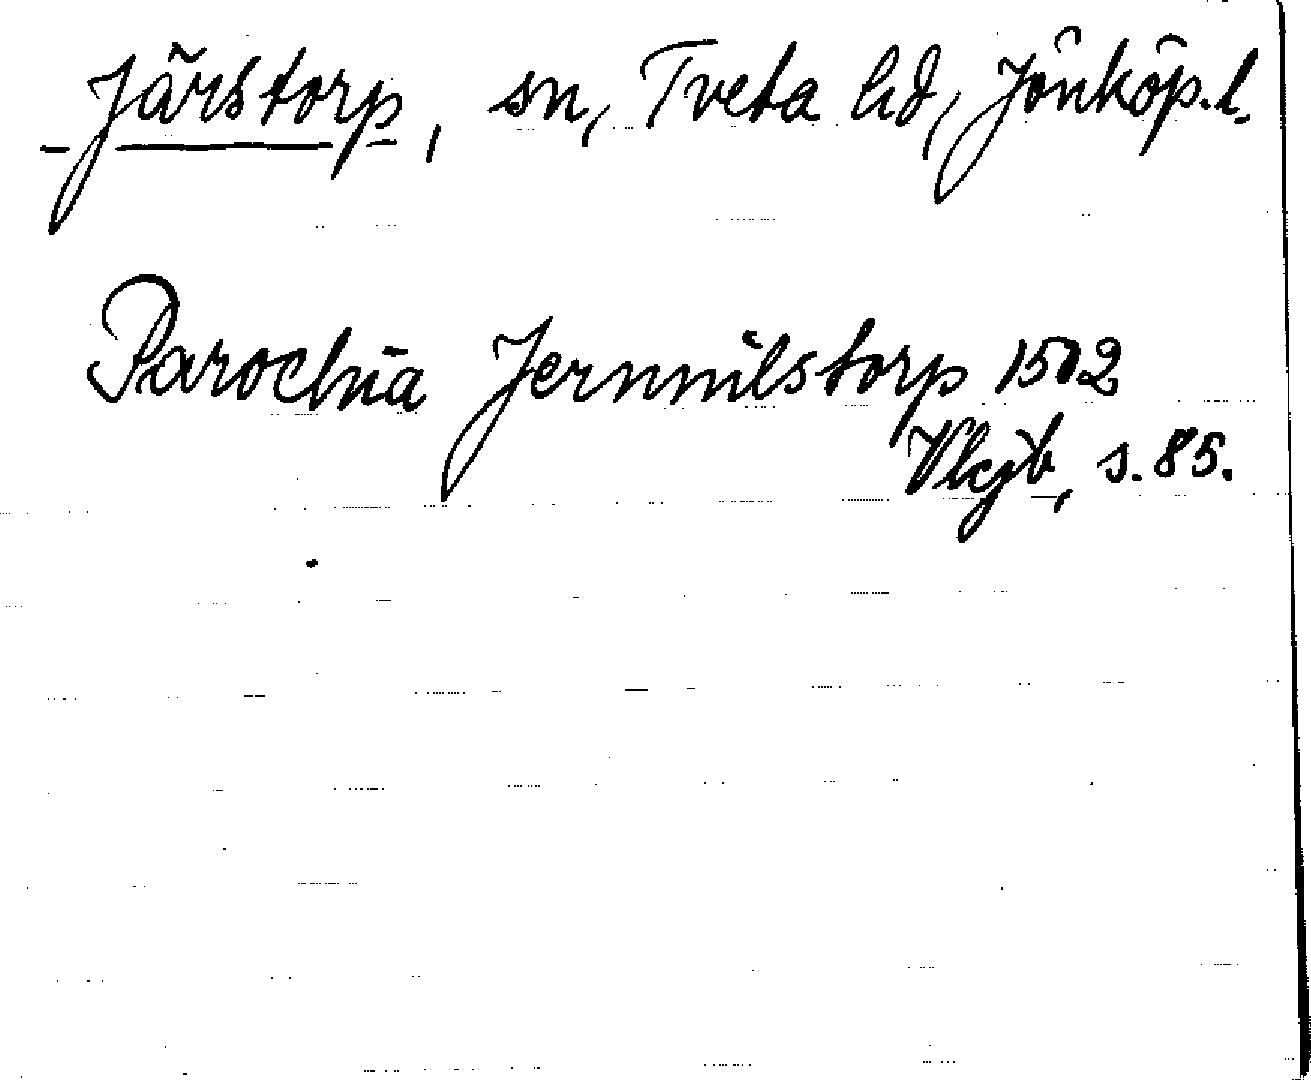 Järstorp, sn, Tveta hd, Jönköp. l.
Parochia Jernmilstorp 1502
Vkjb, s. 85.